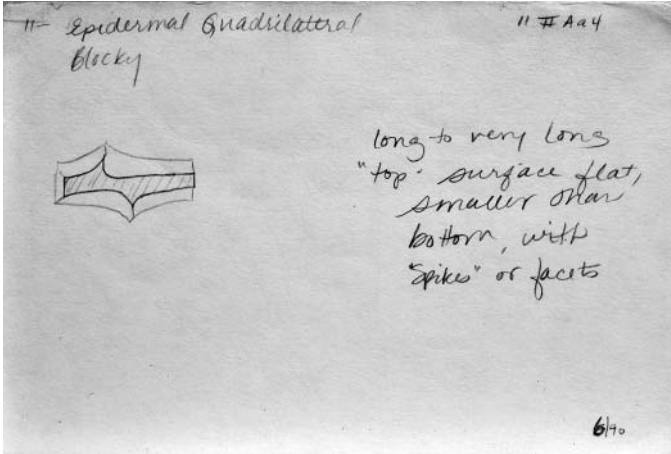 11- Epidermal Quadrilateral
Blocky
11 IIAa4
long to very long
"top" surface flat,
smaller than
bottom, with
"spikes" or facets
6/90